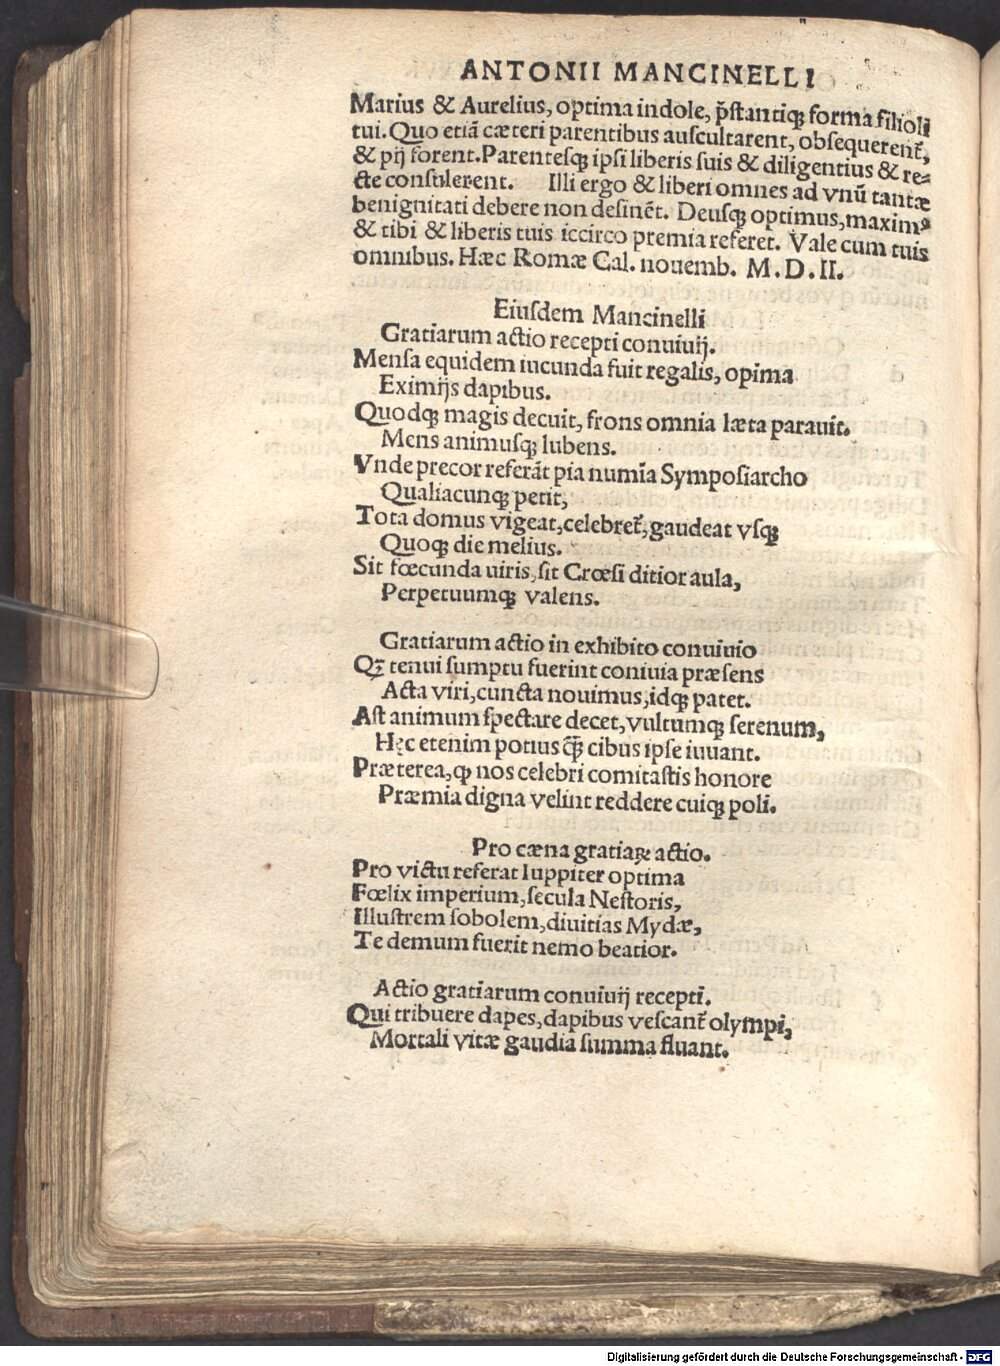 ANTONII MANCINELLI
Marius & Aurelius, optima indole, p̄stantiqꝫ forma filioli
tui. Quo etiā cæteri parentibus auscultarent, obsequerent᷑,
& pij forent. Parentesqꝫ ipsi liberis suis & diligentius & re-
cte consulerent. Illi ergo & liberi omnes ad vnū tantæ
benignitati debere non desinēt. Deusqꝫ optimus, maximꝰ
& tibi & liberis tuis iccirco premia referet. Vale cum tuis
omnibus. Hæc Romæ Cal. nouemb. M.D.II.
Eiusdem Mancinelli
Gratiarum actio recepti conuiuij.
Mensa equidem iucunda fuit regalis, opima
Eximijs dapibus.
Quodqꝫ magis decuit, frons omnia læta parauit.
Mens animusqꝫ lubens.
Vnde precor referāt pia numīa Symposiarcho
Qualiacunqꝫ petit,
Tota domus vigeat, celebret᷑, gaudeat vsqꝫ
Quoqꝫ die melius.
Sit fœcunda uiris, sit Crœsi ditior aula,
Perpetuumqꝫ valens.
Gratiarum actio in exhibito conuiuio
Qꝫ tenui sumptu fuerint coniuia præsens
Acta viri, cuncta nouimus, idqꝫ patet.
Ast animum spectare decet, vultumqꝫ serenum,
Hęc etenim potius q̄ꝫ cibus ipse iuuant.
Præterea, ꝙ nos celebri comitastis honore
Præmia digna velint reddere cuiqꝫ poli.
Pro cæna gratiaꝝ actio.
Pro victu referat Iuppiter optima
Fœlix imperium, secula Nestoris,
Illustrem sobolem, diuitias Mydæ,
Te demum fuerit nemo beatior.
Actio gratiarum conuiuij recepti.
Qui tribuere dapes, dapibus vescant᷑ olympi,
Mortali vitæ gaudia summa fluant.
Digitalisierung gefördert durch die Deutsche Forschungsgemeinschaft - DFG